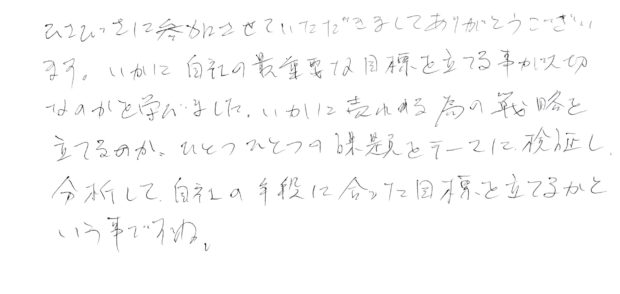 ひさびさに参加させていただきましてありがとうござい
ます。いかに自社の最重要な目標を立てる事が大切
なのかを学びました。いかに売れる為の戦略を
立てるのか。ひとつひとつの課題をテーマに検証し、
分析して、自社の手段に合った目標を立てるかと
いう事ですね。